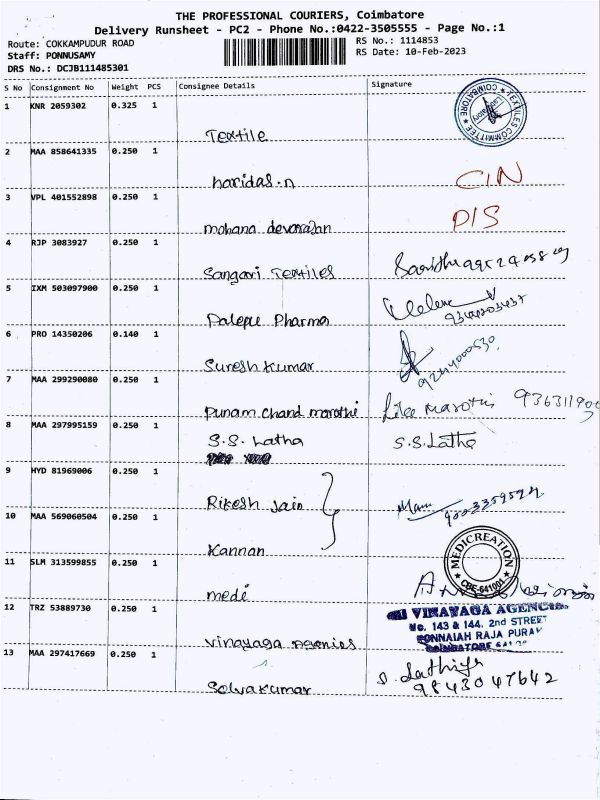 THE PROFESSIONAL COURIERS, Coimbatore
Delivery Runsheet - PC2 - Phone No.:0422-3505555 - Page No.:1
Route: COKKAMPUDUR ROAD
Staff: PONNUSAMY
DRS No.: DCJB111485301
RS No.: 1114853
RS Date: 10-Feb-2023
S No Consignment No Weight PCS Consignee Details Signature
1 KNR 2059302 0.325 1
Textile
TEXTILES COMMITTEE COIMBATORE
2 MAA 858641335 0.250 1
haridas.n CIN
3 VPL 401552898 0.250 1
mohana devarajan DIS
4 RJP 3083927 0.250 1
Sangavi Textiles
5 IXM 503097900 0.250 1
Palepu Pharma
6 PRO 14350206 0.140 1
Suresh kumar
7 MAA 299290080 0.250 1
Punam chand marothi
8 MAA 297995159 0.250 1
S.S. Latha S.S. Latha
9 HYD 81969006 0.250 1
Rikesh Jain
10 MAA 569060504 0.250 1
Kannan
11 SLM 313599855 0.250 1
medi
MEDICREATION CBE-641001
12 TRZ 53889730 0.250 1
Vinayaga Agenies
VINAYAGA AGENCIES
No. 143 & 144. 2nd STREET
PONNAIAH RAJA PURAM
COIMBATORE
13 MAA 297417669 0.250 1
Selvakumar
9843047642